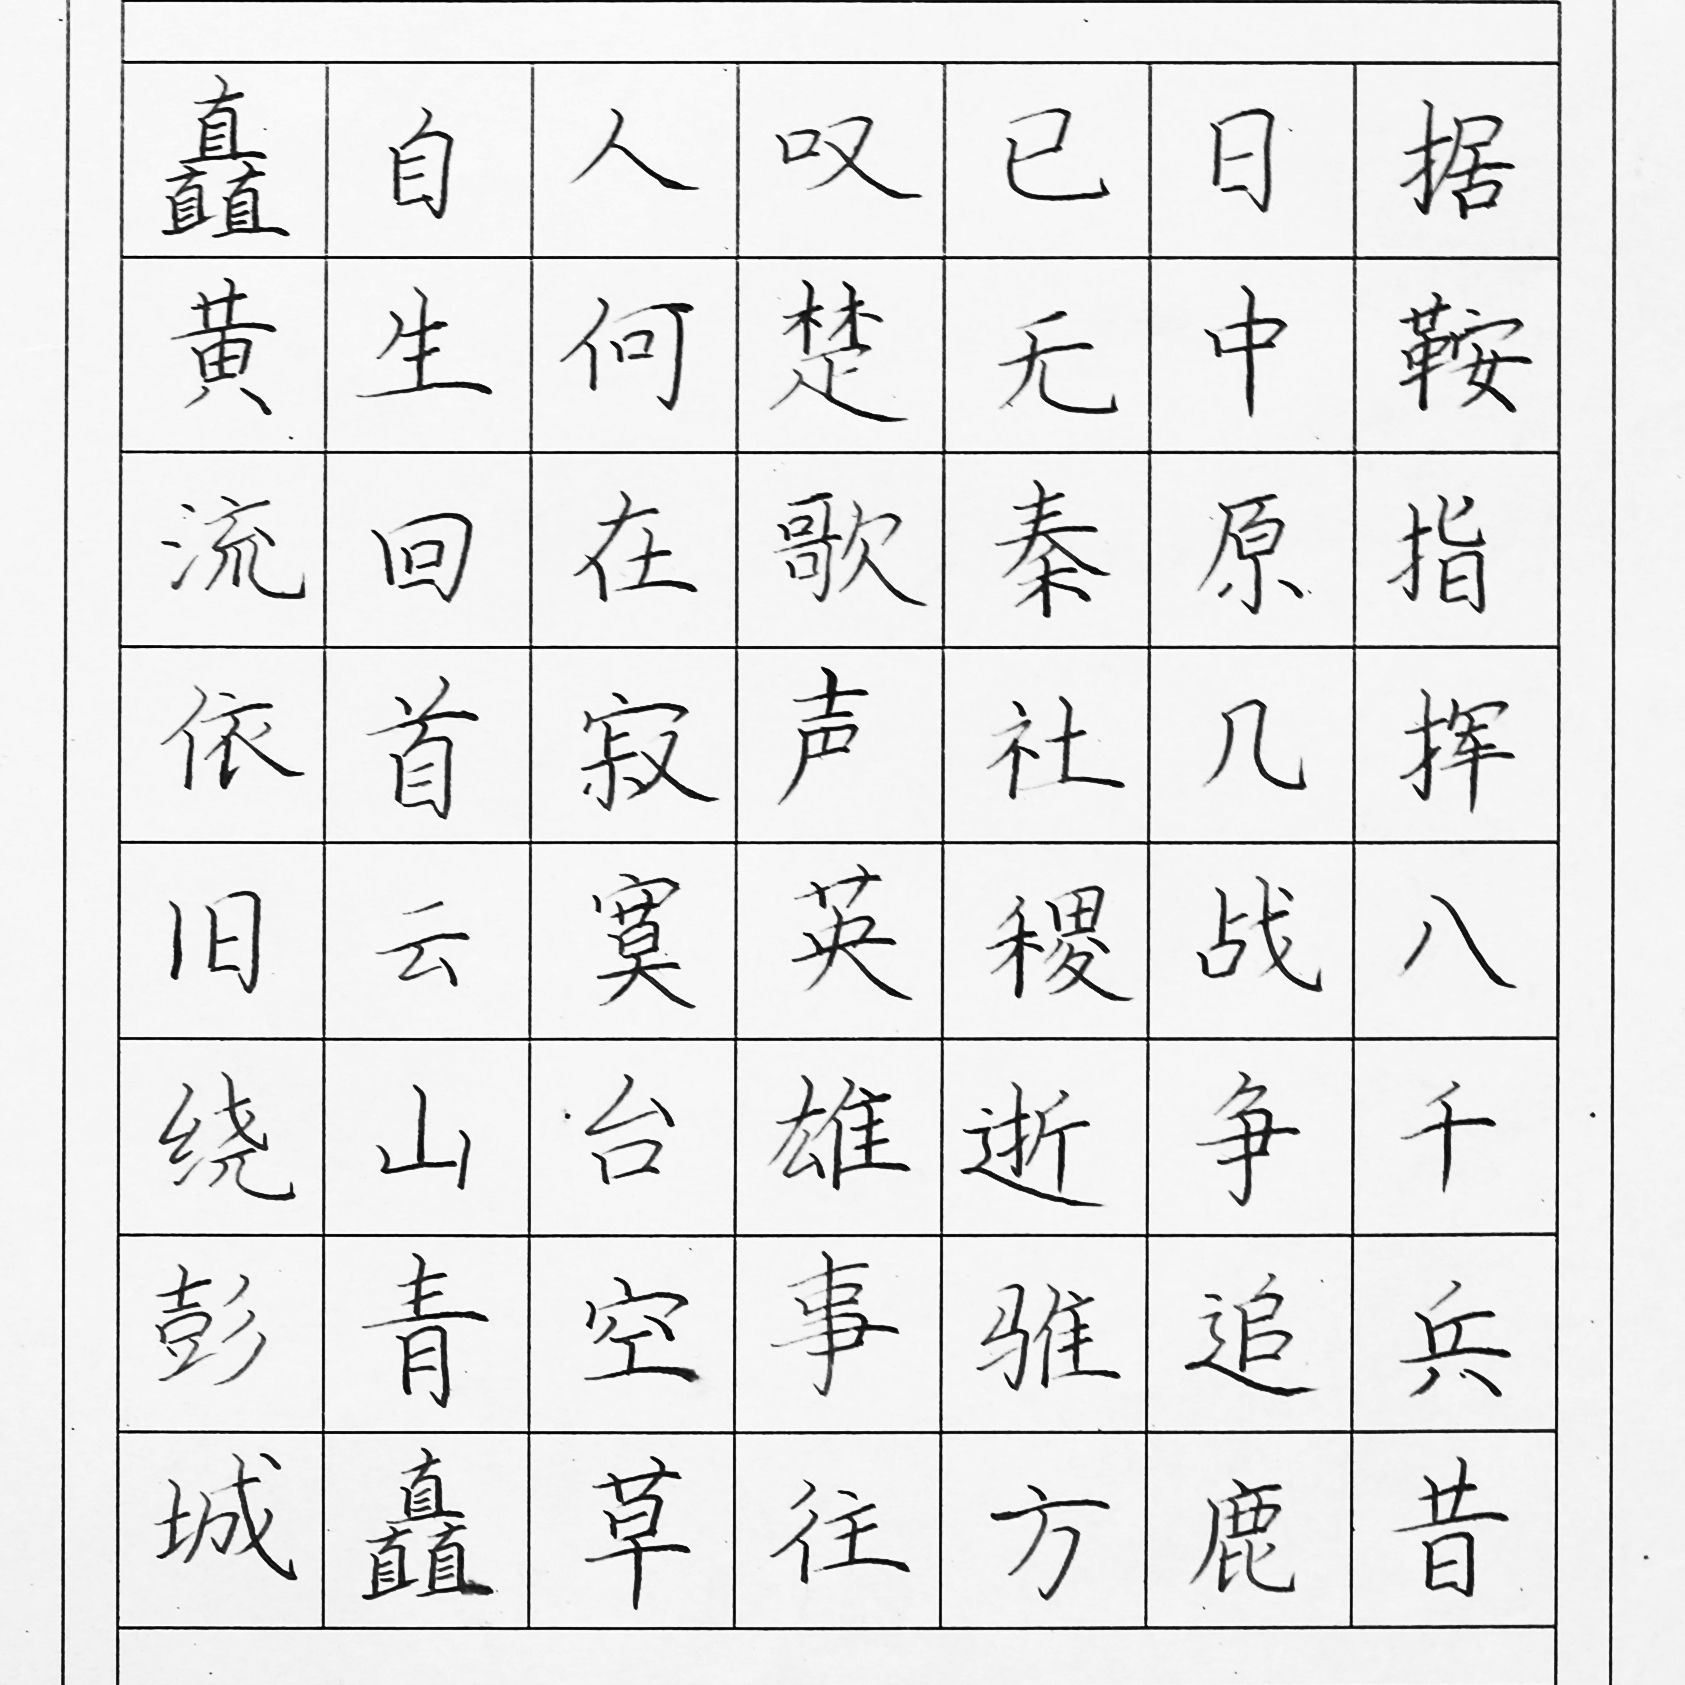 据鞍指挥八千兵昔
日中原几战争追鹿
已无秦社稷逝骓方
叹楚歌声英雄事往
人何在寂寞台空草
自生回首云山青矗
矗黄流依旧绕彭城